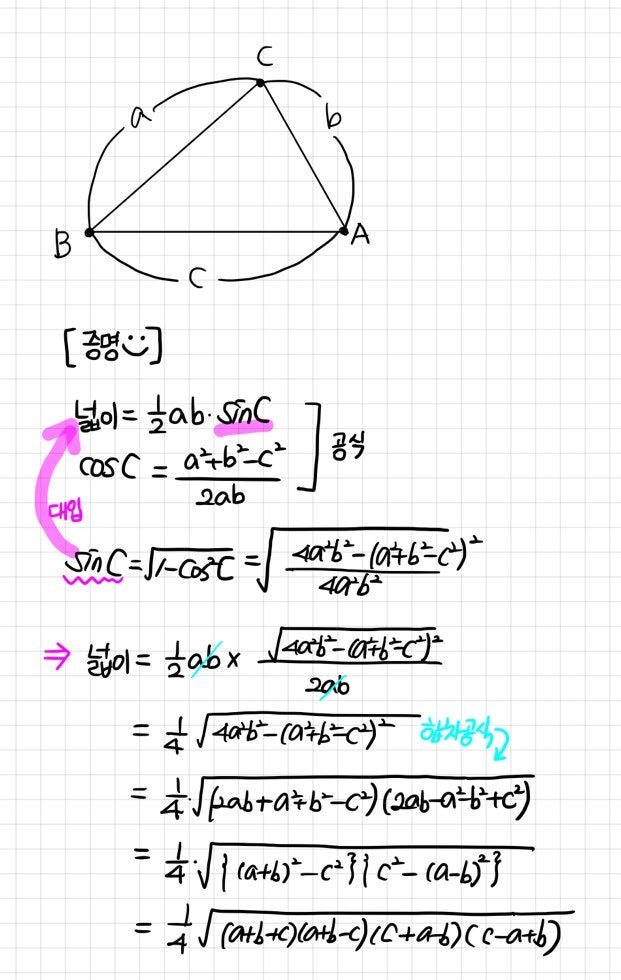 C
a
b
B
A
C
[증명]
넓이 = 1/2 ab · sinC
cosC = (a²+b²-c²)/2ab
공식
대입
sinC = √(1-cos²C) = √((4a²b²-(a²+b²-c²)²)/4a²b²)
⇒ 넓이 = 1/2 ab × √(4a²b²-(a²+b²-c²)²)/2ab
= 1/4 √(4a²b²-(a²+b²-c²)²) 합차공식
= 1/4 · √((2ab+a²+b²-c²)(2ab-a²-b²+c²))
= 1/4 · √({(a+b)²-c²}{c²-(a-b)²})
= 1/4 √((a+b+c)(a+b-c)(c+a-b)(c-a+b))